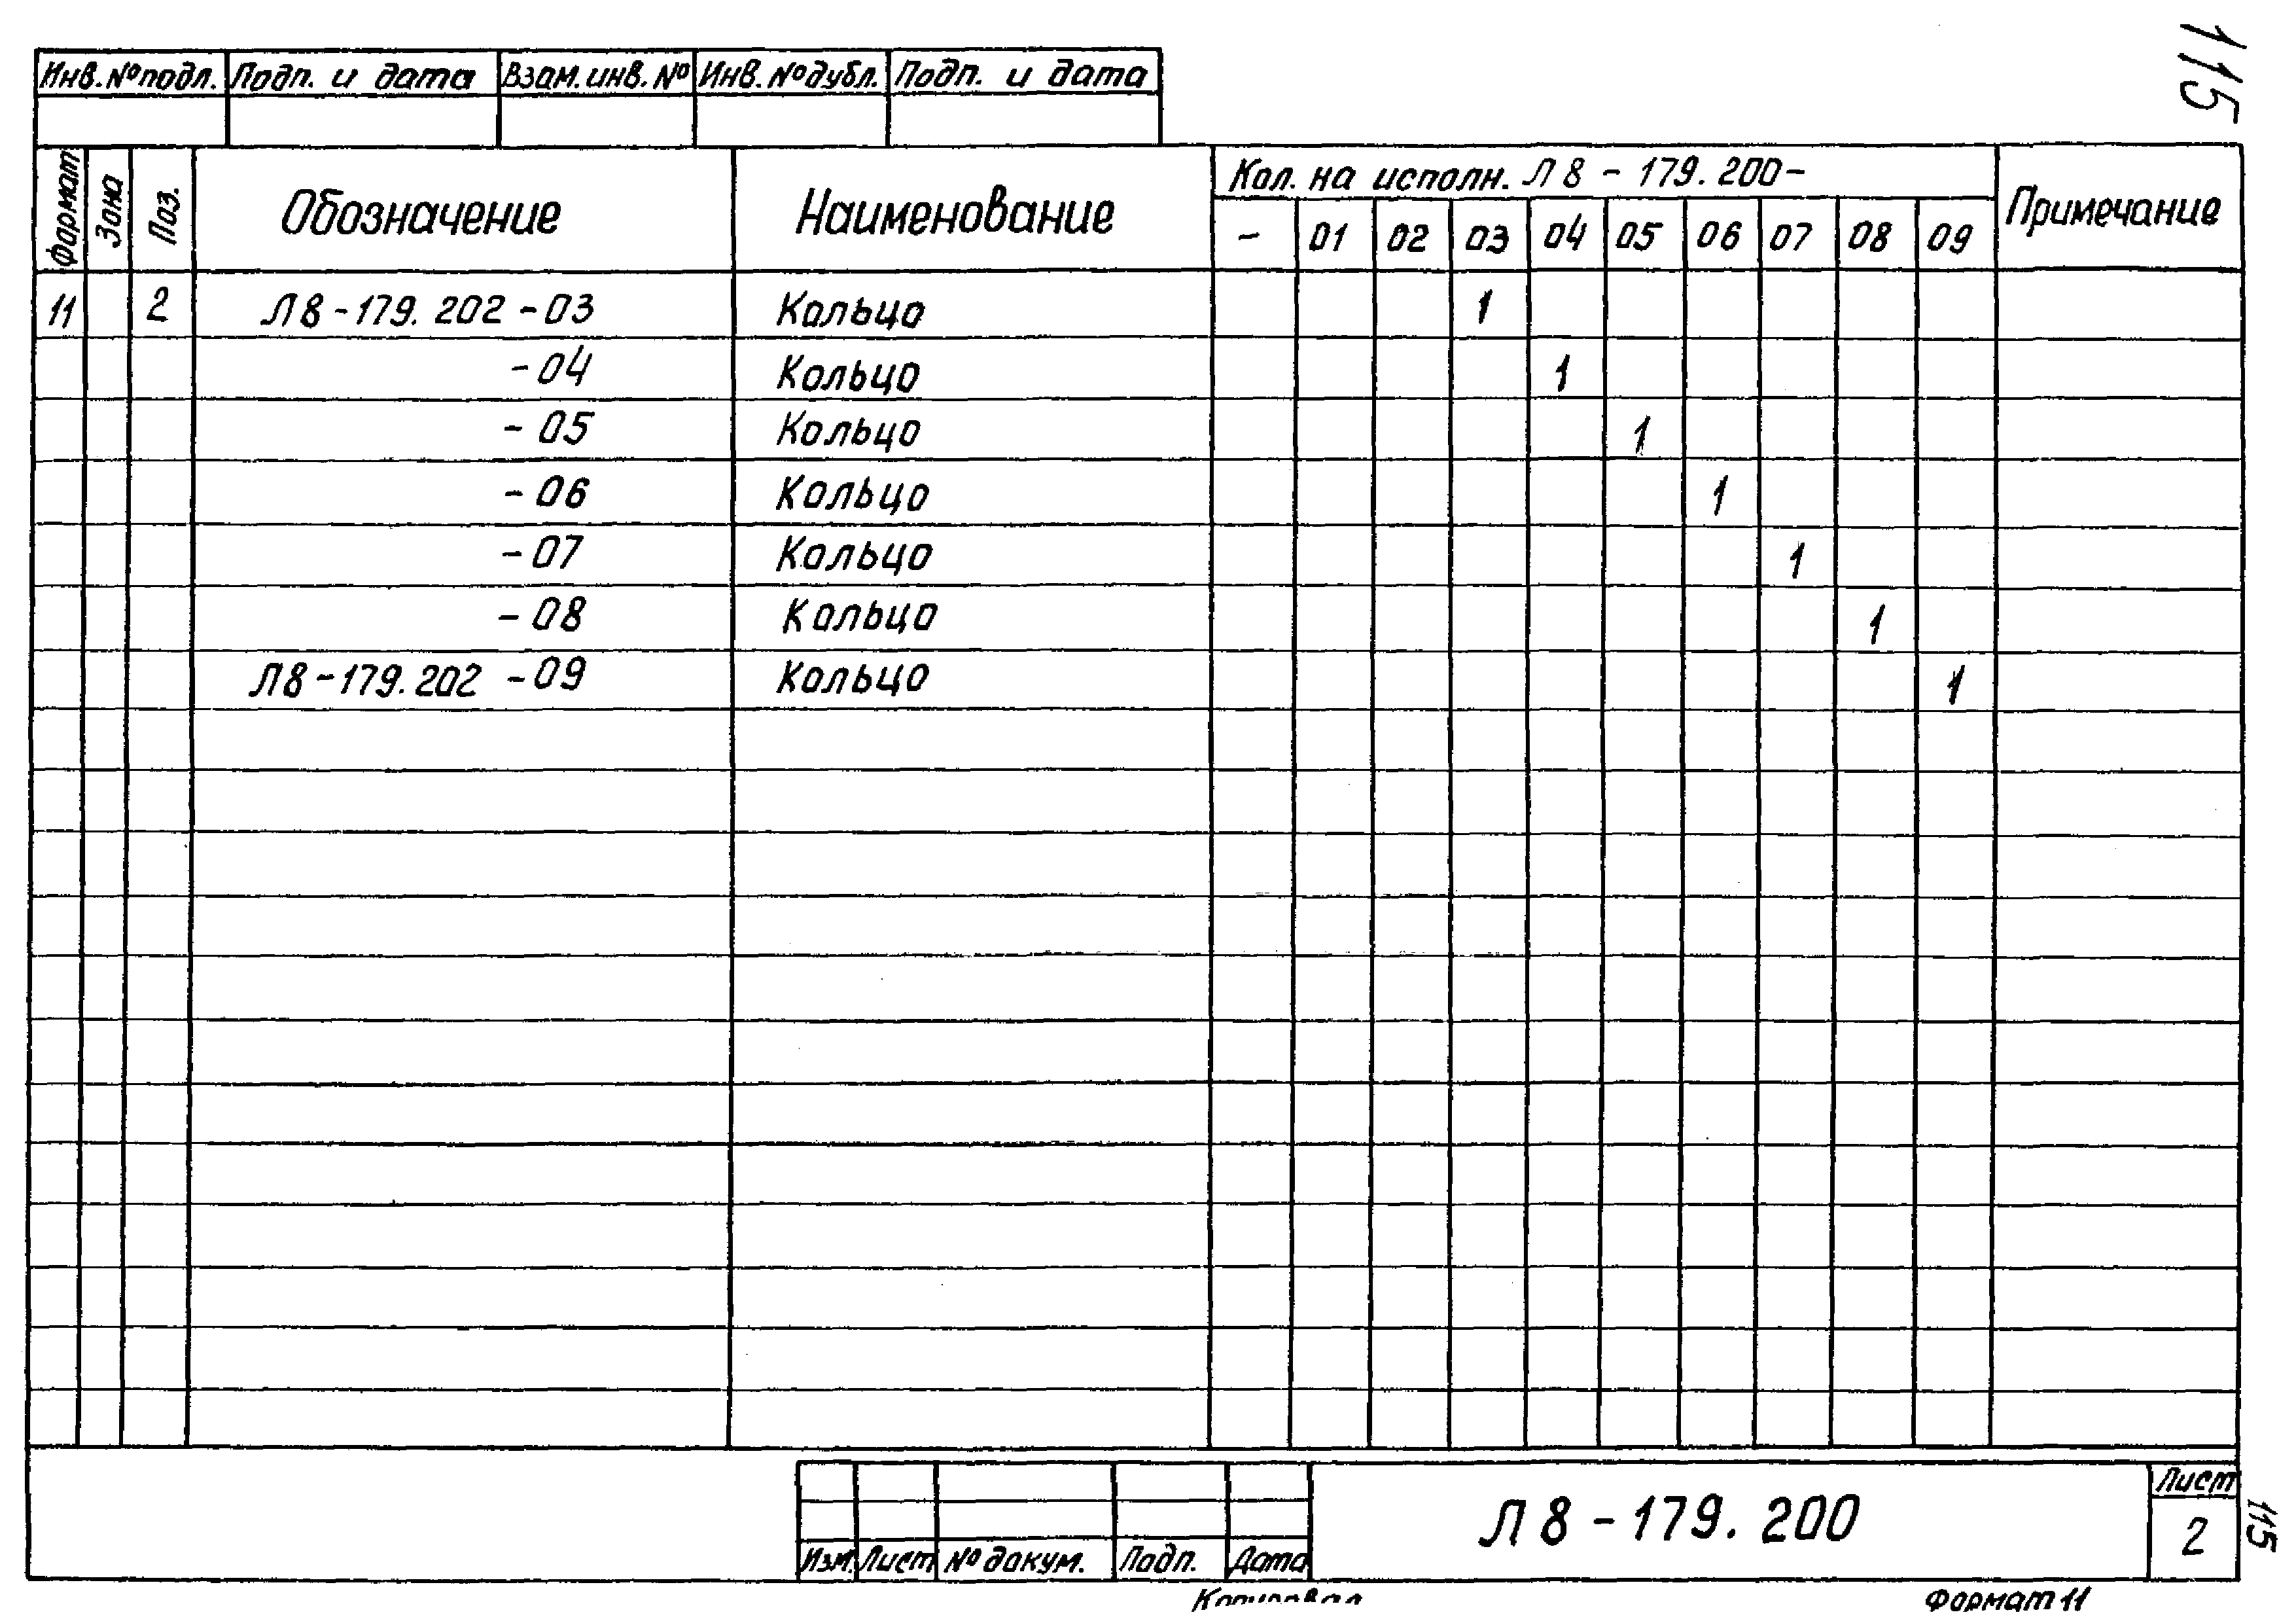 115
Инв. № подл. Подп. и дата Взам. инв. № Инв. № дубл. Подп. и дата
Формат Зона Поз. Обозначение Наименование Кол. на исполн. Л8-179.200- Примечание
- 01 02 03 04 05 06 07 08 09
11 2 Л8-179.202-03 Кольцо 1
-04 Кольцо 1
-05 Кольцо 1
-06 Кольцо 1
-07 Кольцо 1
-08 Кольцо 1
Л8-179.202-09 Кольцо 1
Изм. Лист № докум. Подп. Дата
Л8-179.200
Лист
2
115
Копировал
Формат 11